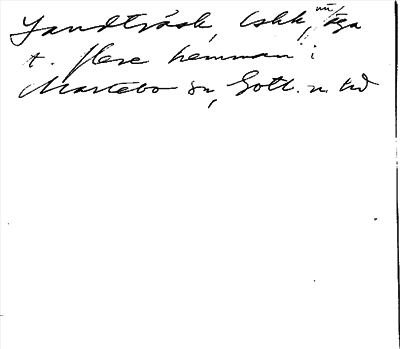 Landträsk, Cskk, nu äga
t. flere hemman i
Martebo sn, Gotl. n. hd